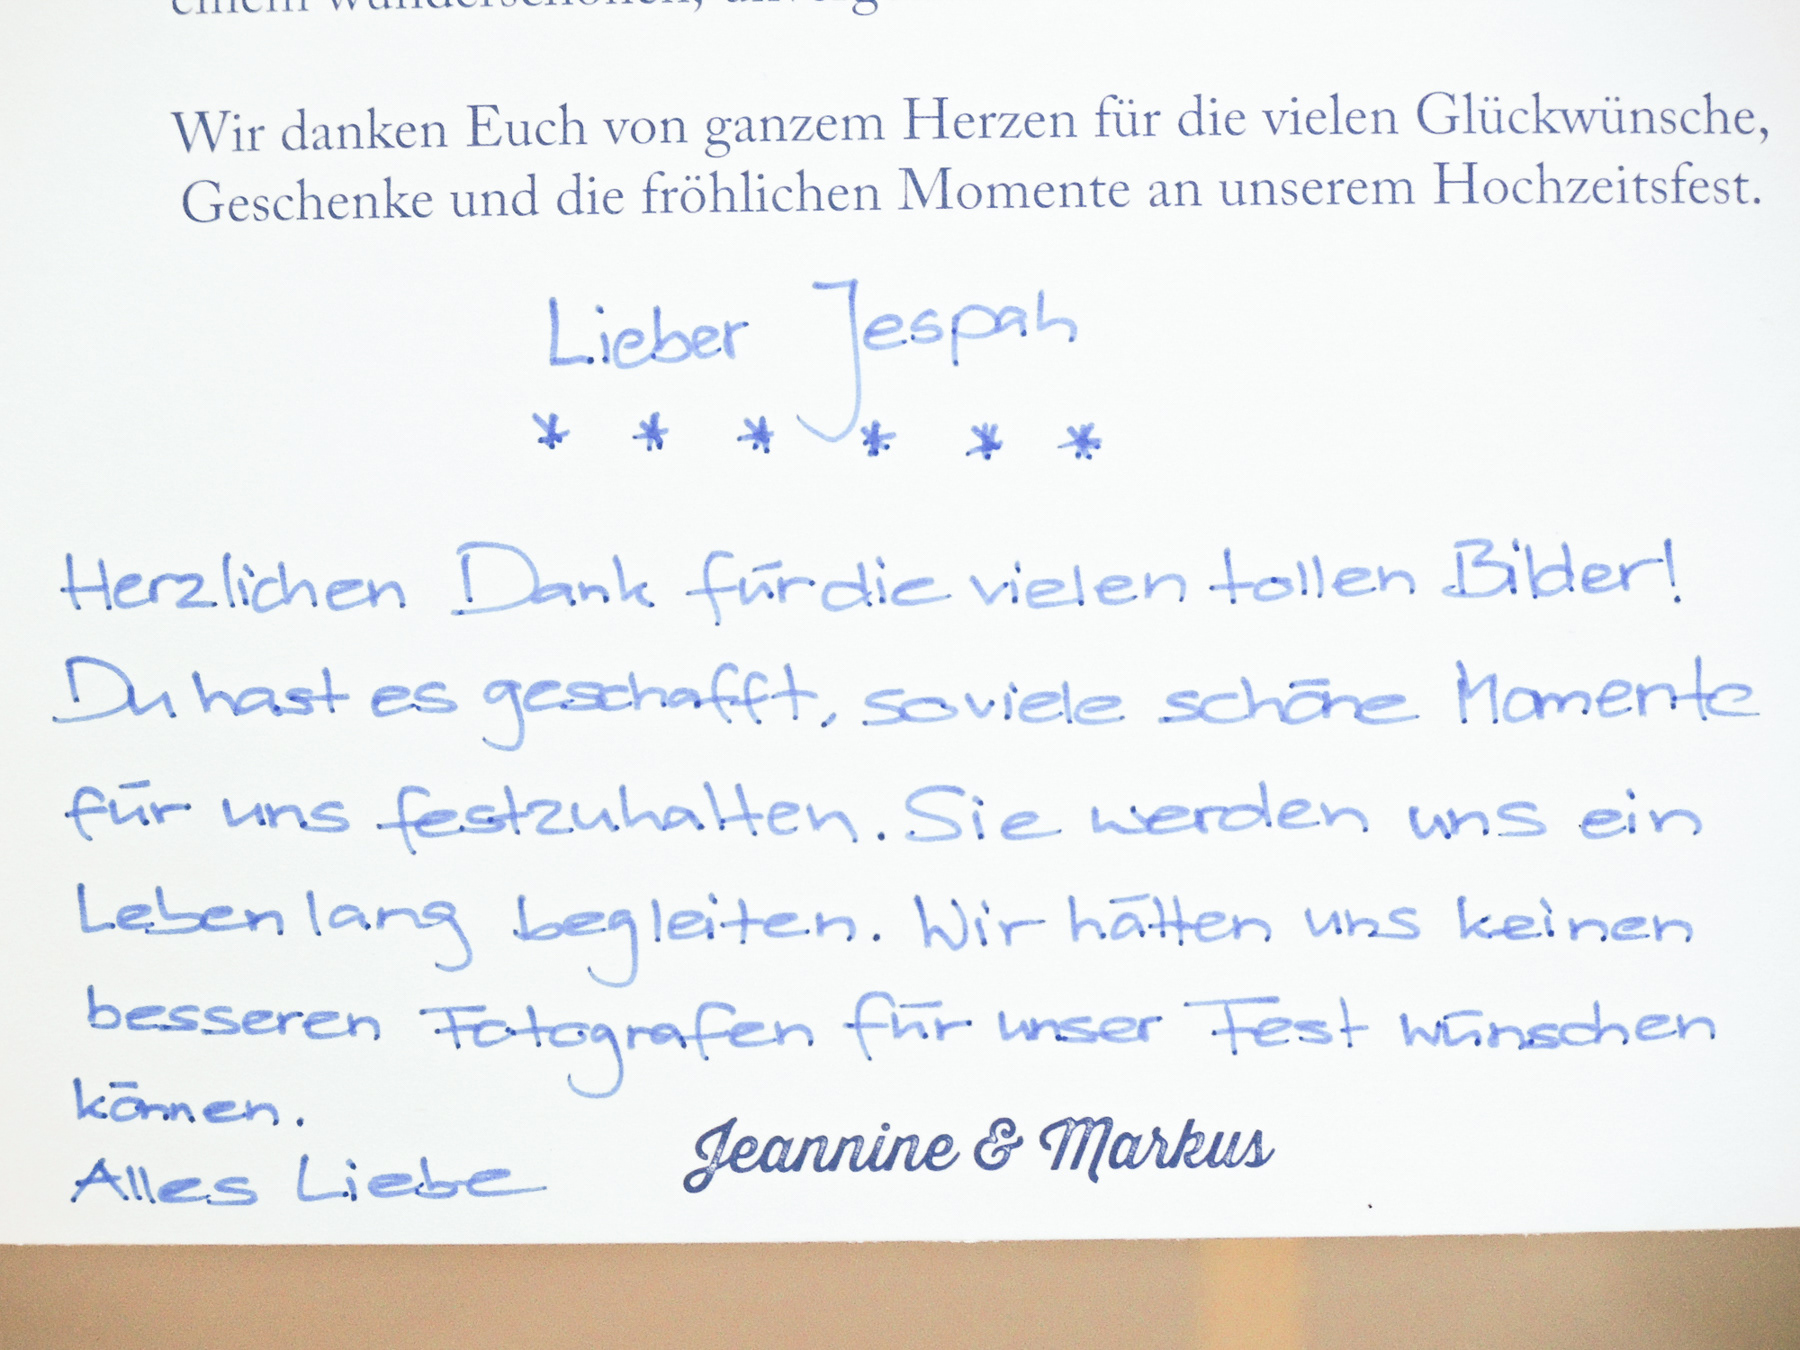 einem wunderschönen,
Wir danken Euch von ganzem Herzen für die vielen Glückwünsche,
Geschenke und die fröhlichen Momente an unserem Hochzeitsfest.
Lieber Jespah
* * * * * *
Herzlichen Dank für die vielen tollen Bilder!
Du hast es geschafft, soviele schöne Momente
für uns festzuhalten. Sie werden uns ein
Leben lang begleiten. Wir hätten uns keinen
besseren Fotografen für unser Fest wünschen
können.
Jeannine & Markus
Alles Liebe